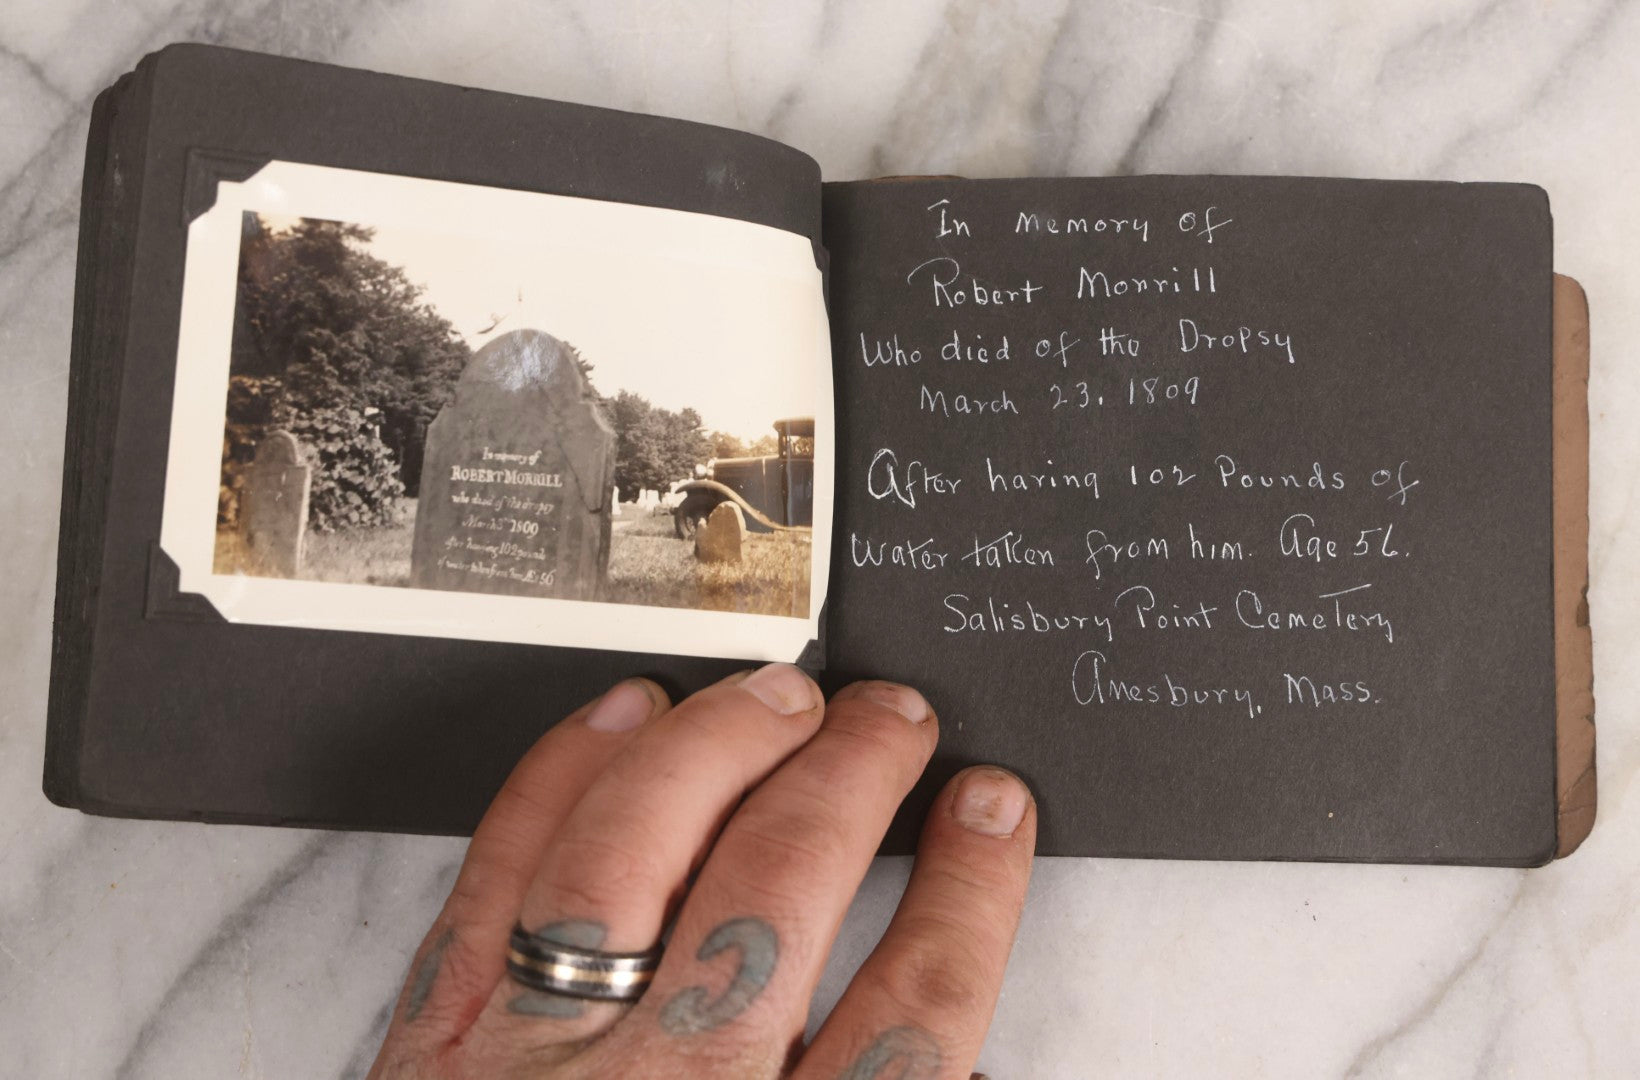 In memory of
ROBERT MORRILL
who died of the dropsy
1809
after having 102 pounds
of water taken from him Æ 56
In memory of
Robert Morrill
Who died of the Dropsy
March 23, 1809
After having 102 Pounds of
Water taken from him. Age 56.
Salisbury Point Cemetery
Amesbury, Mass.